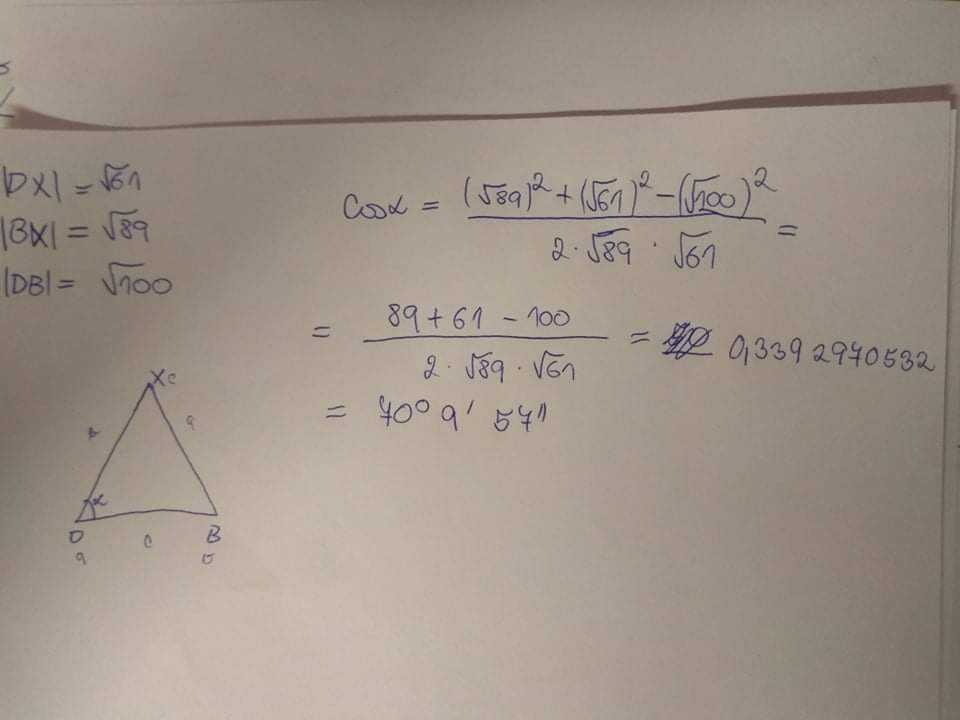 |DX| = √61
|BX| = √89
|DB| = √100
cos α = ((√89)² + (√61)² - (√100)²) / (2·√89 · √61) =
= (89 + 61 - 100) / (2·√89 · √61) = 0,3392970532
= 70° 9' 57"
X c
a
α
D c B
a